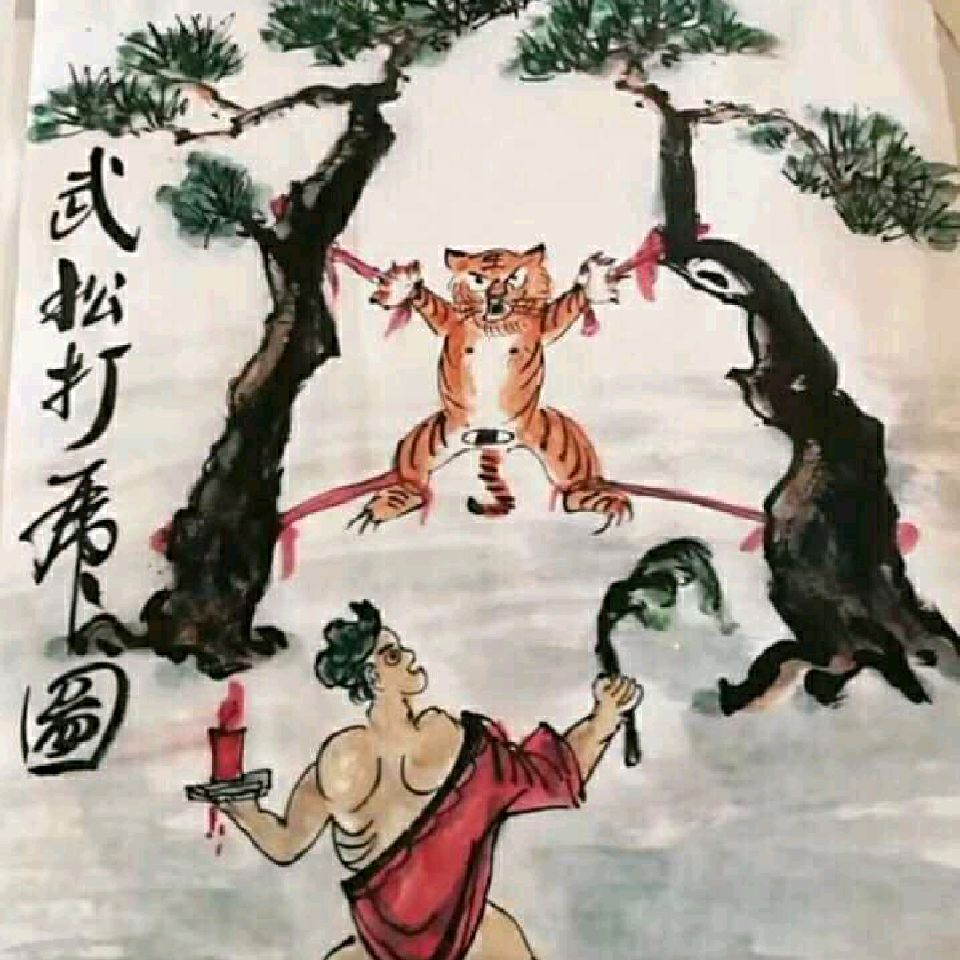 武松打虎圖